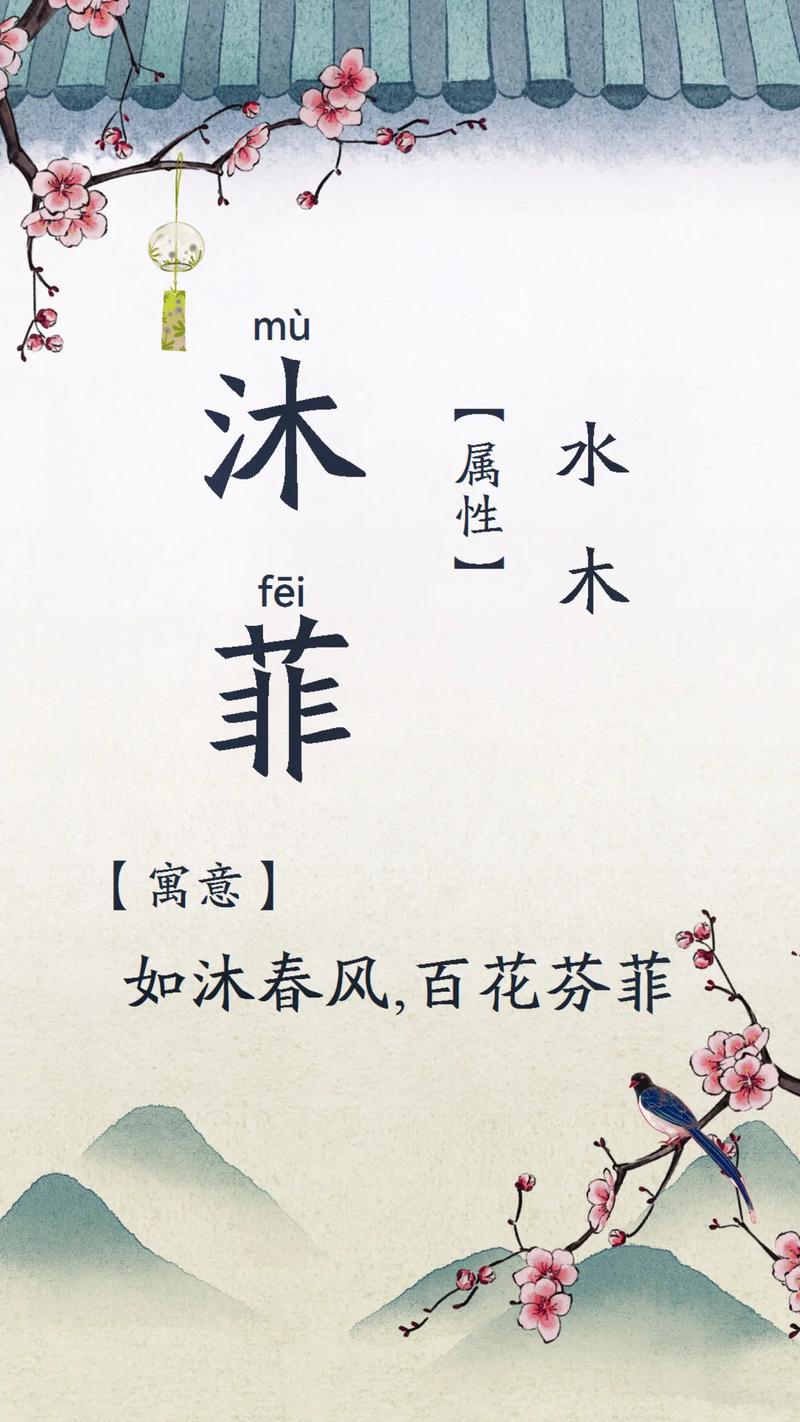 mù
沐
fēi
菲
【属性】
水
木
【寓意】
如沐春风,百花芬菲